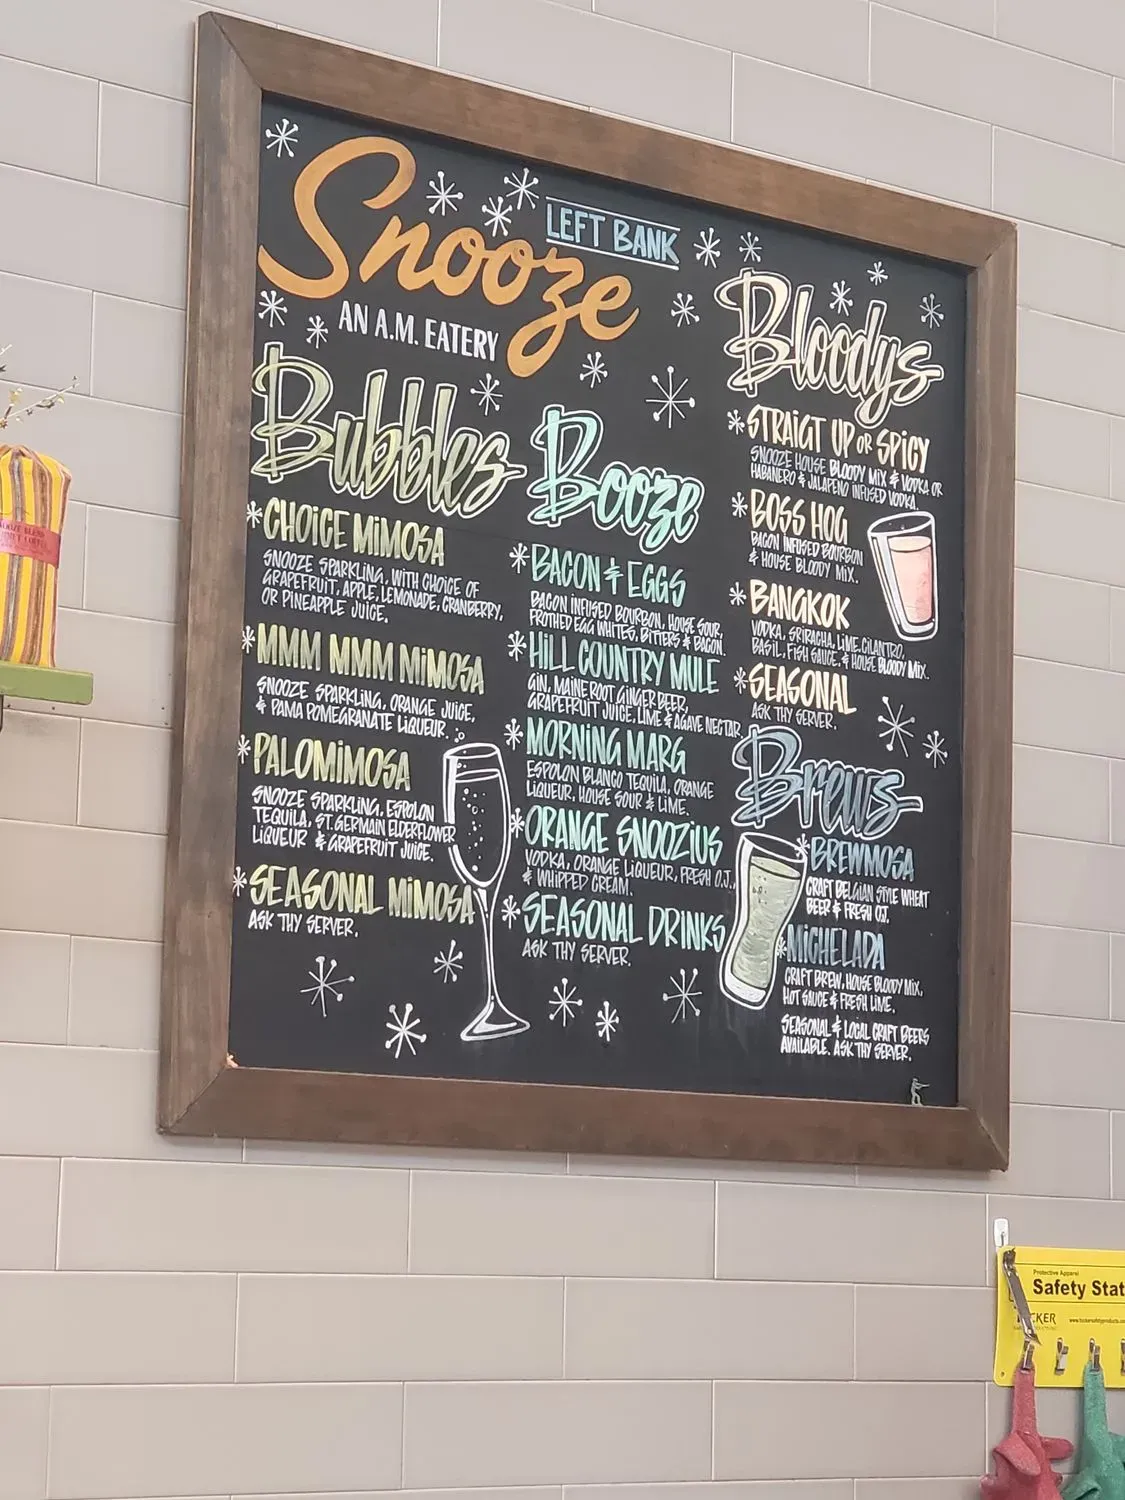 Snooze
LEFT BANK
AN A.M. EATERY
Bubbles
CHOICE MIMOSA
SNOOZE SPARKLING, WITH CHOICE OF
GRAPEFRUIT, APPLE, LEMONADE, CRANBERRY,
OR PINEAPPLE JUICE.
MMM MMM MIMOSA
SNOOZE SPARKLING, ORANGE JUICE,
& PAMA POMEGRANATE LIQUEUR.
PALOMIMOSA
SNOOZE SPARKLING, ESPOLON
TEQUILA, ST. GERMAIN ELDERFLOWER
LIQUEUR & GRAPEFRUIT JUICE.
SEASONAL MIMOSA
ASK THY SERVER.
Booze
BACON & EGGS
BACON INFUSED BOURBON, HOUSE SOUR,
FROTHED EGG WHITES, BITTERS & BACON.
HILL COUNTRY MULE
GIN, MAINE ROOT GINGER BEER,
GRAPEFRUIT JUICE, LIME & AGAVE NECTAR.
MORNING MARG
ESPOLON BLANCO TEQUILA, ORANGE
LIQUEUR, HOUSE SOUR & LIME.
ORANGE SNOOZIUS
VODKA, ORANGE LIQUEUR, FRESH O.J.,
& WHIPPED CREAM.
SEASONAL DRINKS
ASK THY SERVER.
Bloodys
STRAIGT UP OR SPICY
SNOOZE HOUSE BLOODY MIX & VODKA OR
HABANERO & JALAPENO INFUSED VODKA.
BOSS HOG
BACON INFUSED BOURBON
& HOUSE BLOODY MIX.
BANGKOK
VODKA, SRIRACHA, LIME, CILANTRO,
BASIL, FISH SAUCE, & HOUSE BLOODY MIX.
SEASONAL
ASK THY SERVER.
Brews
BREWMOSA
CRAFT BELGIAN STYLE WHEAT
BEER & FRESH O.J.
MICHELADA
CRAFT BREW, HOUSE BLOODY MIX,
HOT SAUCE & FRESH LIME.
SEASONAL & LOCAL CRAFT BEERS
AVAILABLE. ASK THY SERVER.
Protective Apparel
Safety Stat